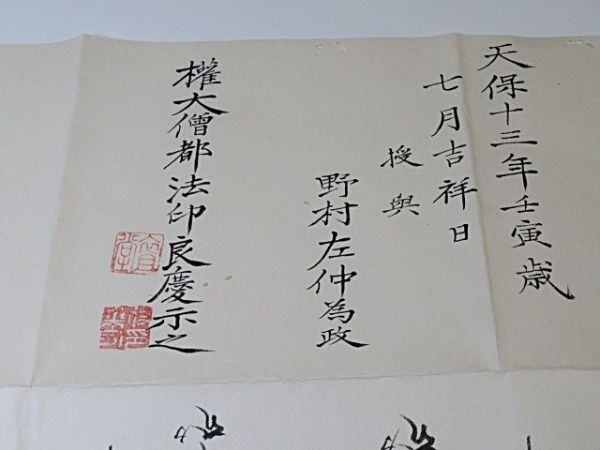 天保十三年壬寅歳
七月吉祥日
授與
野村左仲為政
權大僧都法印良慶示之